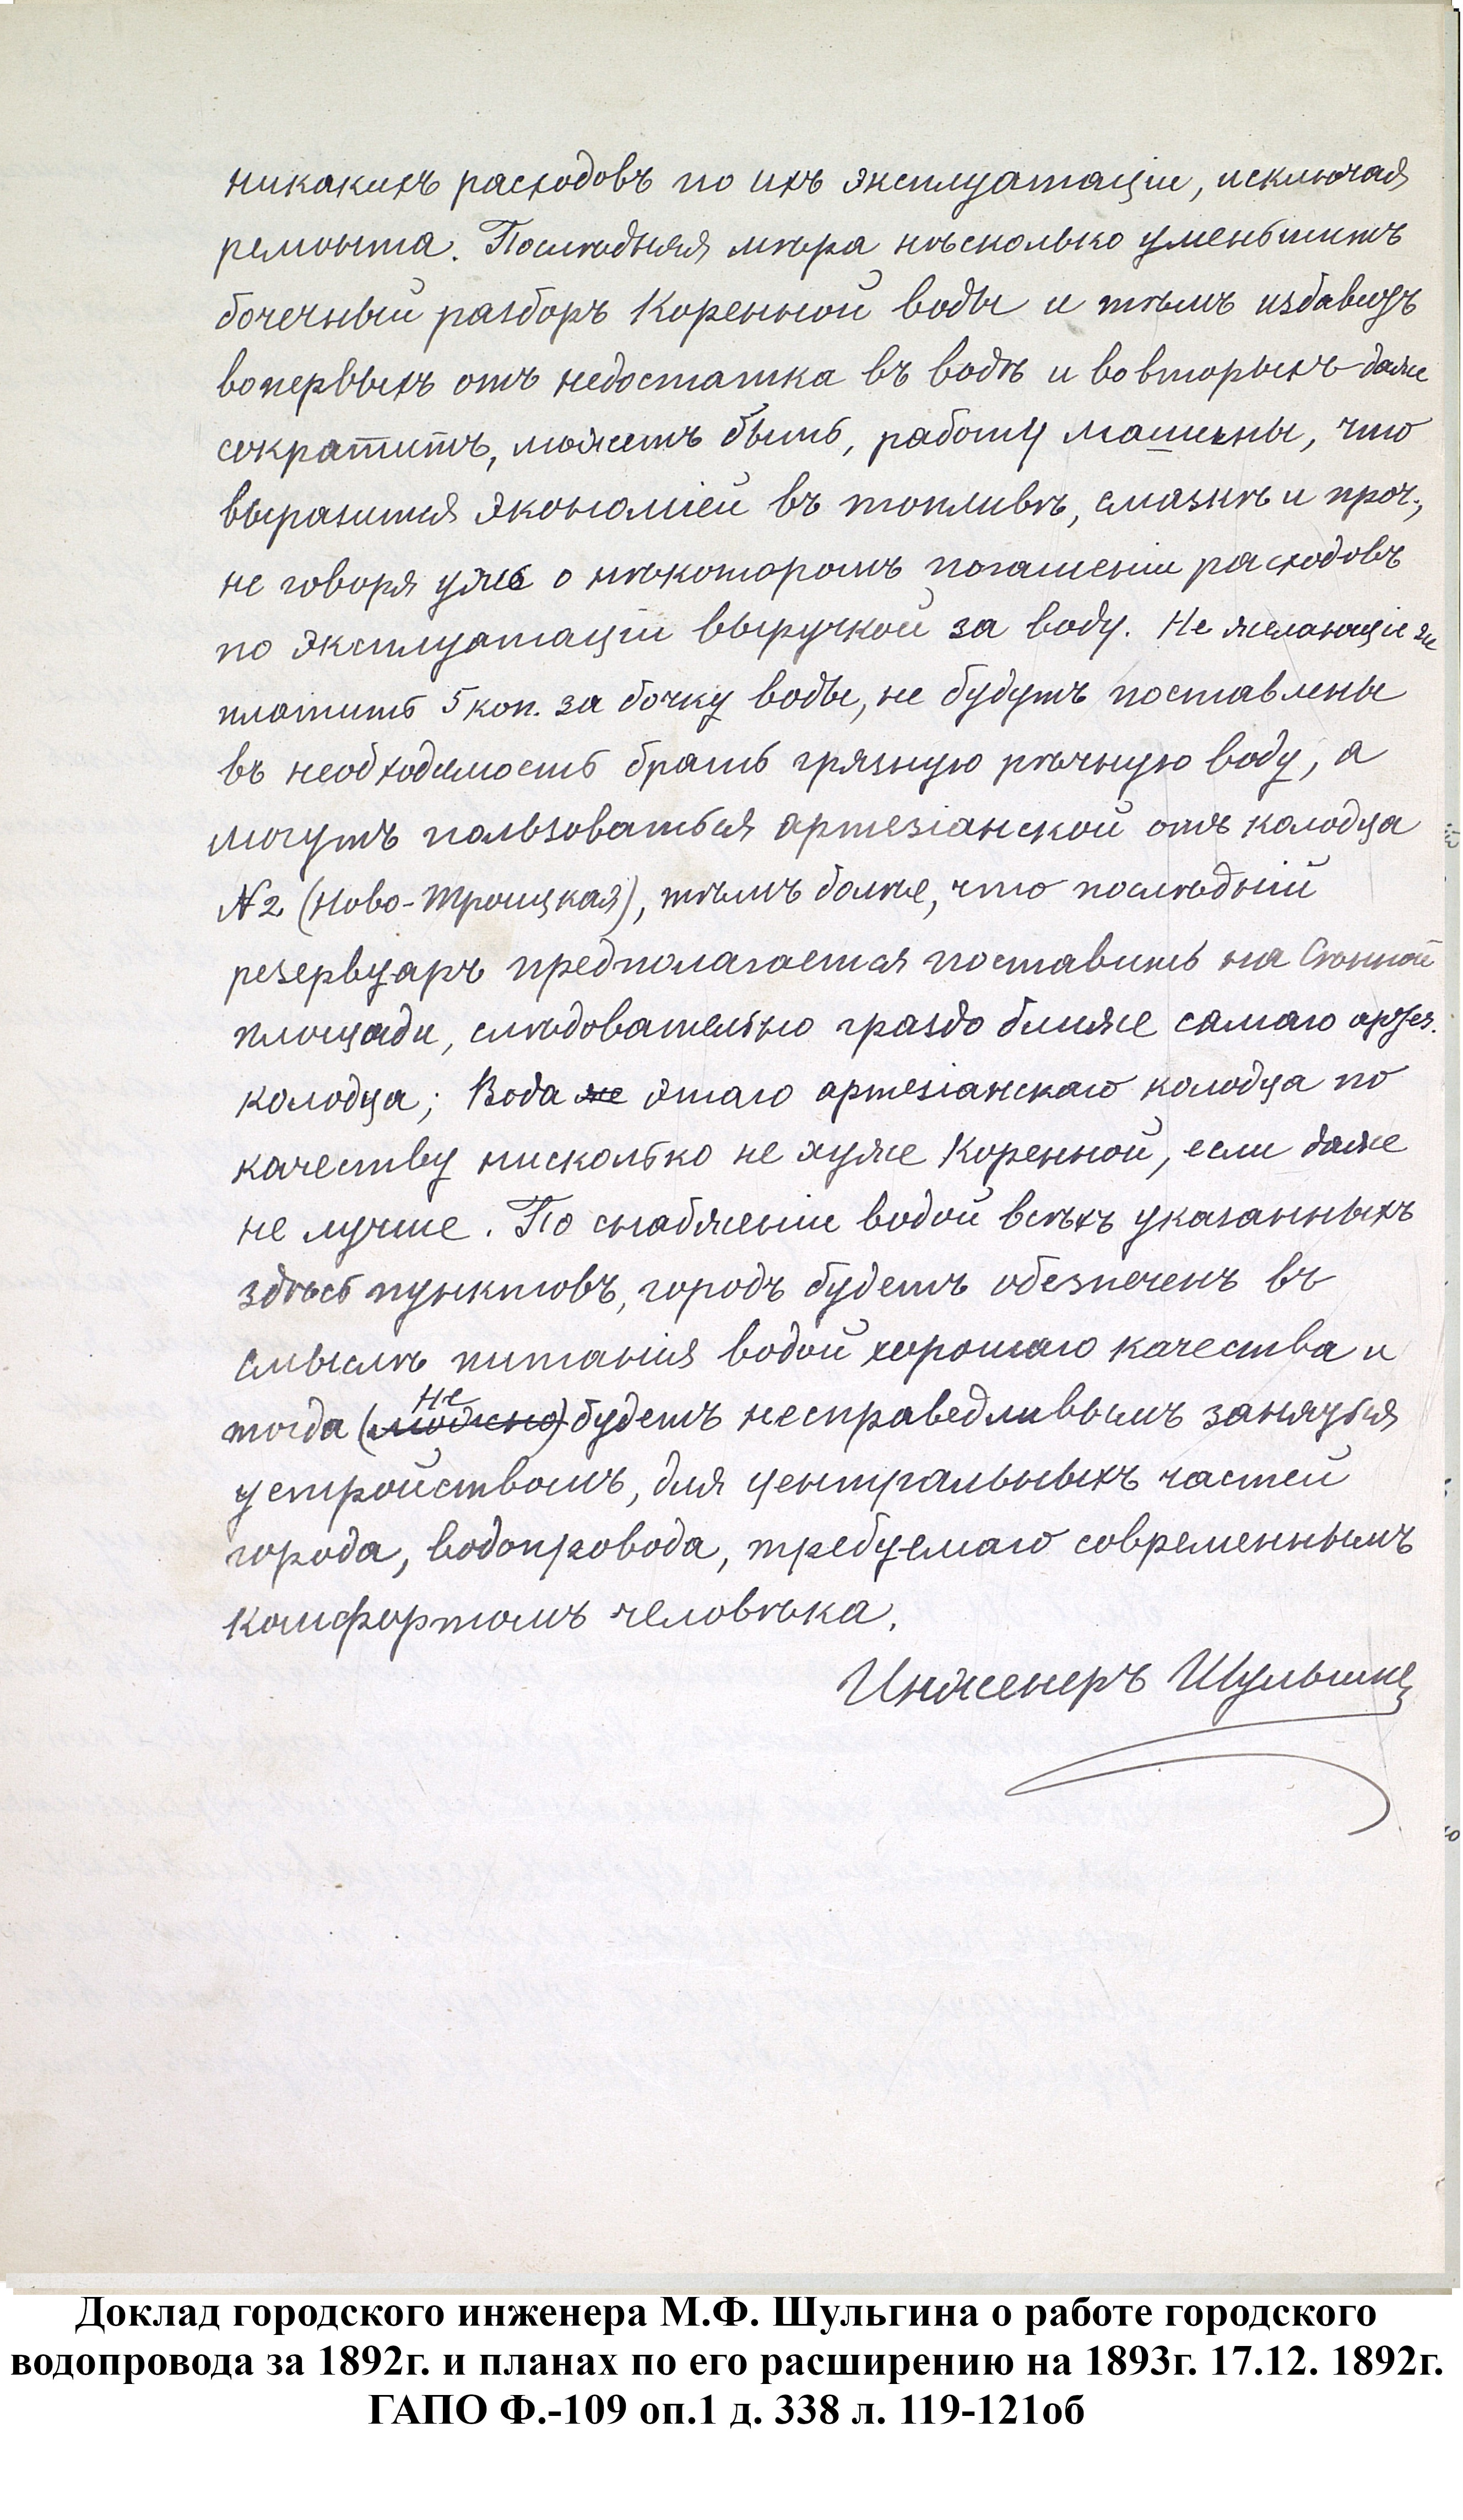 никакихъ расходовъ по ихъ эксплуатаціи, исключая
ремонта. Послѣдняя мѣра нѣсколько уменьшитъ
бочечный разборъ Коренной воды и тѣмъ избавитъ
вопервыхъ отъ недостатка въ водѣ и вовторыхъ даже
сократитъ, можетъ быть, работу машины, что
выразится экономіей въ топливѣ, смазкѣ и проч.,
не говоря уже о нѣкоторомъ погашеніи расходовъ
по эксплуатаціи выручкой за воду. Не желающіе же
платить 5 коп. за бочку воды, не будутъ поставлены
въ необходимость брать грязную рѣчную воду, а
могутъ пользоваться артезіанской отъ колодца
№ 2 (Ново-Троицкая), тѣмъ болѣе, что послѣдній
резервуаръ предполагается поставить на Сѣнной
площади, слѣдовательно гразо ближе самаго артез.
колодца; Вода же этаго артезіанскаго колодца по
качеству нисколько не хуже Коренной, если даже
не лучше. По снабженіи водой всѣхъ указанныхъ
здѣсь пунктовъ, городъ будетъ обезпеченъ въ
смыслѣ питанія водой хорошаго качества и
не
тогда (можно) будетъ несправедливымъ заняться
устройствомъ, для центральныхъ частей
города, водопровода, требуемаго современнымъ
комфортомъ человѣка.
Инженеръ Шульгинъ
Доклад городского инженера М.Ф. Шульгина о работе городского
водопровода за 1892г. и планах по его расширению на 1893г. 17.12. 1892г.
ГАПО Ф.-109 оп.1 д. 338 л. 119-121об